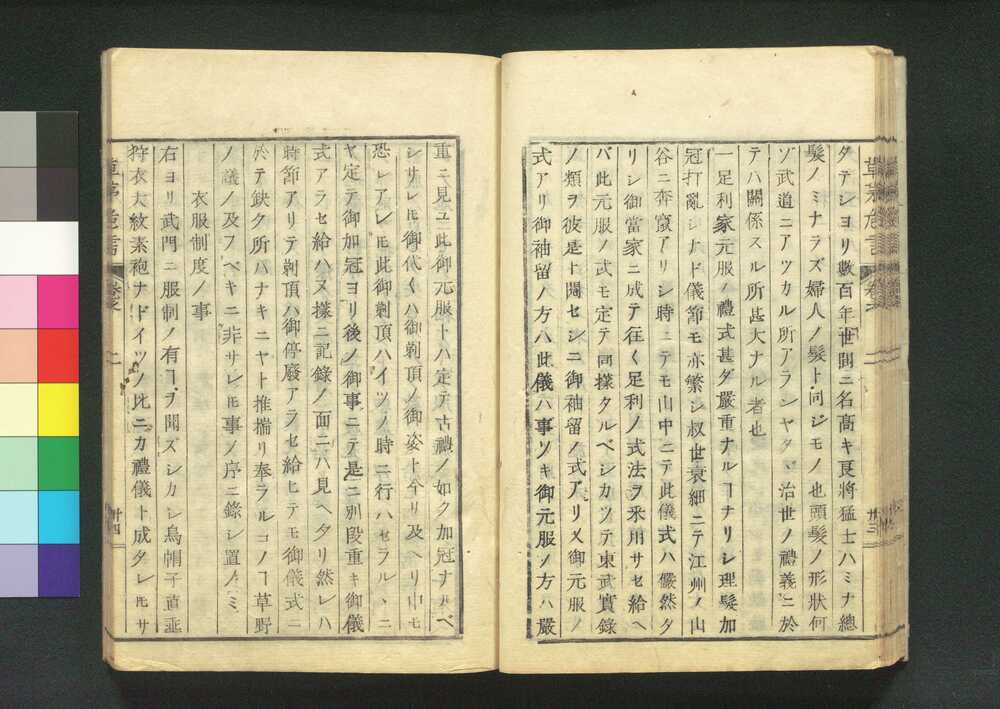 タテシヨリ數百年世間ニ名高キ良將猛士ハミナ總
髮ノミナラズ婦人ノ髮ト同ジモノ也頭髮ノ形狀何
ゾ武道ニアツカル所アランヤタヾ治世ノ禮義ニ於
テハ關係スル所甚大ナル者也
一足利家元服ノ禮式甚ダ嚴重ナルヿナリシ理髮加
冠打亂シナド儀節モ亦繁シ叔世衰細ニテ江州ノ山
谷ニ奔竄アリシ時ニテモ山中ニテ此儀式ハ儼然タ
リシ御當家ニ成テ往〱足利ノ式法ヲ釆用サセ給ヘ
バ此元服ノ式モ定テ同樣タルベシカツテ東武實錄
ノ類ヲ彼是ト閲セシニ御袖留ノ式アリ又御元服ノ
式アリ御袖留ノ方ハ此儀ハ事ソキ御元服ノ方ハ嚴
重ニ見ユ此御元服トハ定テ古禮ノ如ク加冠ナルベ
シサレ𪜈御代〱ハ御剃頂ノ御姿ト今リ及ヘリ申モ
恐レアレ𪜈此御剃頂ハイツノ時ニ行ハセラルヽニ
ヤ定テ御加冠ヨリ後ノ御事ニテ是ニ別段重キ御儀
式アラセ給ハヌ樣ニ記錄ノ面ニハ見ヘタリ然レハ
時節アリテ剃頂ハ御停廢アラセ給ヒテモ御儀式ニ
於テ鈌ク所ハナキニヤト推揣リ奉ラルコノヿ草野
ノ議ノ及フヘキニ非サレ𪜈事ノ序ニ錄シ置ノミ
衣服制度ノ事
右ヨリ武門ニ服制ノ有ヿヲ聞ズシカシ烏帽子直垂
狩衣大紋素袍ナドイツノ比ニカ禮儀ト成タレ𪜈サ
草茅危言
卷之
二
廿三
草茅危言
卷之
二
廿四